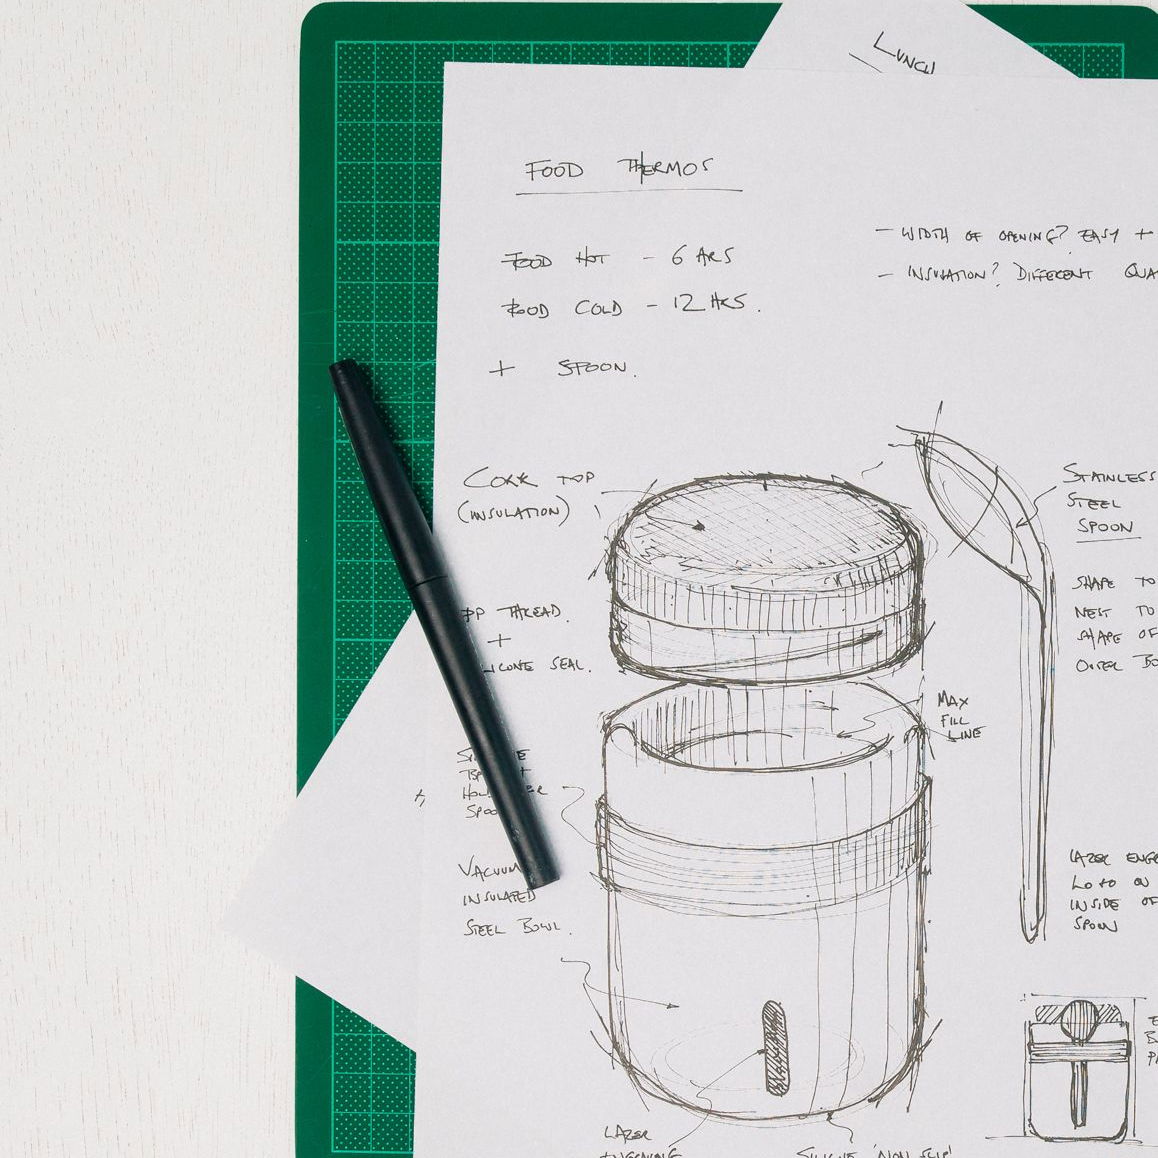 LUNCH
FOOD THERMOS
FOOD HOT - 6 HRS
FOOD COLD - 12 HRS.
+ SPOON.
- WIDTH OF OPENING? EASY +
- INSULATION? DIFFERENT
CORK TOP
(INSULATION)
STAINLESS
STEEL
SPOON
SHAPE TO
NEST TO
SHAPE OF
OUTER
PP THREAD.
+
SEAL.
MAX
FILL
LINE
VACUUM
INSULATED
STEEL BOWL.
LAZER
LOGO ON
INSIDE OF
SPOON
LAZER
SILICONE 'NON SLIP'